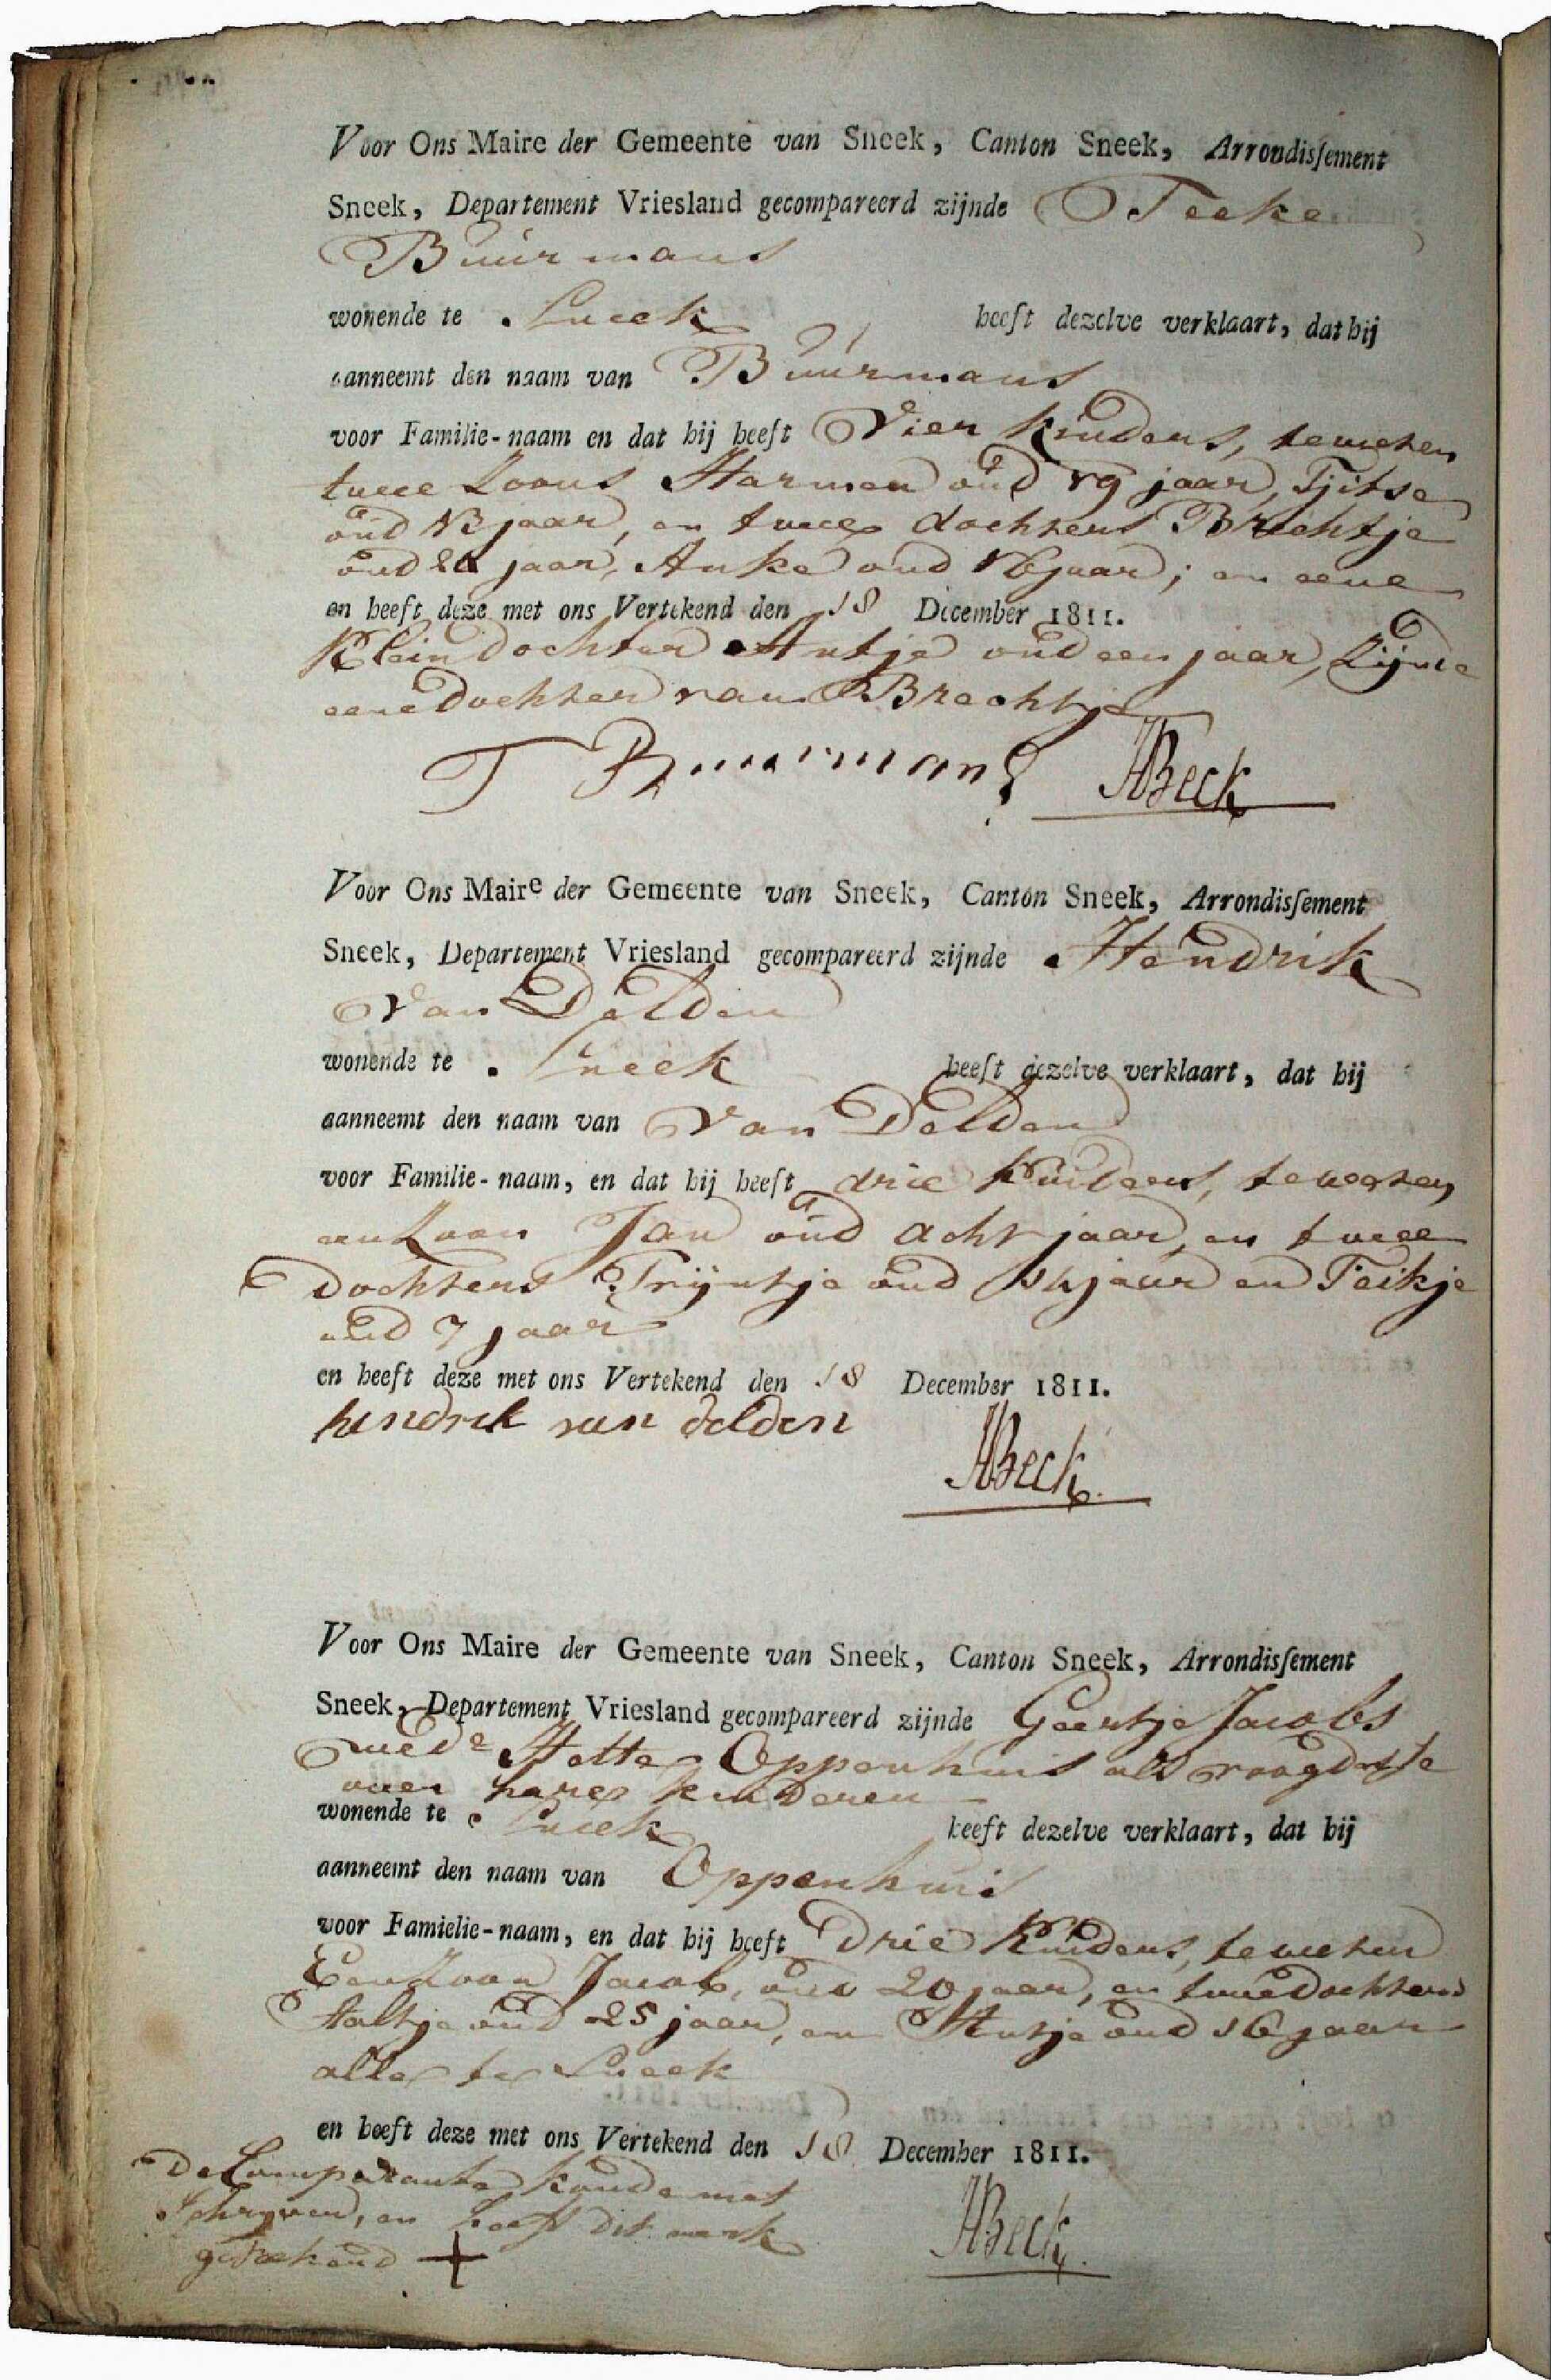 Voor Ons Maire der Gemeente van Sneek, Canton Sneek, Arrondisſement
Sneek, Departement Vriesland gecompareerd zijnde Teeke
Buúrmans
wonende te Sneek heeft dezelve verklaart, dat hij
aanneemt den naam van Buúrmans
voor Familie-naam en dat hij heeft Vier kinders, teweten
twee Zoons Harmen oud 19 jaar, Tjitse
oud 13 jaar, en twee dochters Brechtje
oud jaar, Anke oud 16 jaar; en eene
en heeft deze met ons Vertekend den 18 December 1811.
Kleindochter Antje oud een jaar, Zijnde
eene dochter van Brechtje
T Buurmans HBeck
Voor Ons Maire der Gemeente van Sneek, Canton Sneek, Arrondisſement
Sneek, Departement Vriesland gecompareerd zijnde Hendrik
Van Delden
wonende te Sneek heeft dezelve verklaart, dat hij
aanneemt den naam van Van Delden
voor Familie-naam, en dat hij heeft drie kinders, teweten
een Zoon Jan oud acht jaar, en twee
dochters Trijntje oud 14 jaar en Feikje
oud 7 jaar
en heeft deze met ons Vertekend den 18 December 1811.
hendrik van delden
HBeck.
Voor Ons Maire der Gemeente van Sneek, Canton Sneek, Arrondisſement
Sneek, Departement Vriesland gecompareerd zijnde Geertje Jacobs
wede Hette Oppenhuis als voogdesse
over hare kinderen
wonende te Sneek heeft dezelve verklaart, dat hij
aanneemt den naam van Oppenhuis
voor Famielie-naam, en dat hij heeft Drie Kinders, teweten
Een Zoon Jacob, oud 20 jaar, en twee dochters
oud 25 jaar, en oud 16 jaar
alle te Sneek
en heeft deze met ons Vertekend den 18 December 1811.
De Comparante konde niet
schryven, en heeft dit merk
getekend +
HBeck.